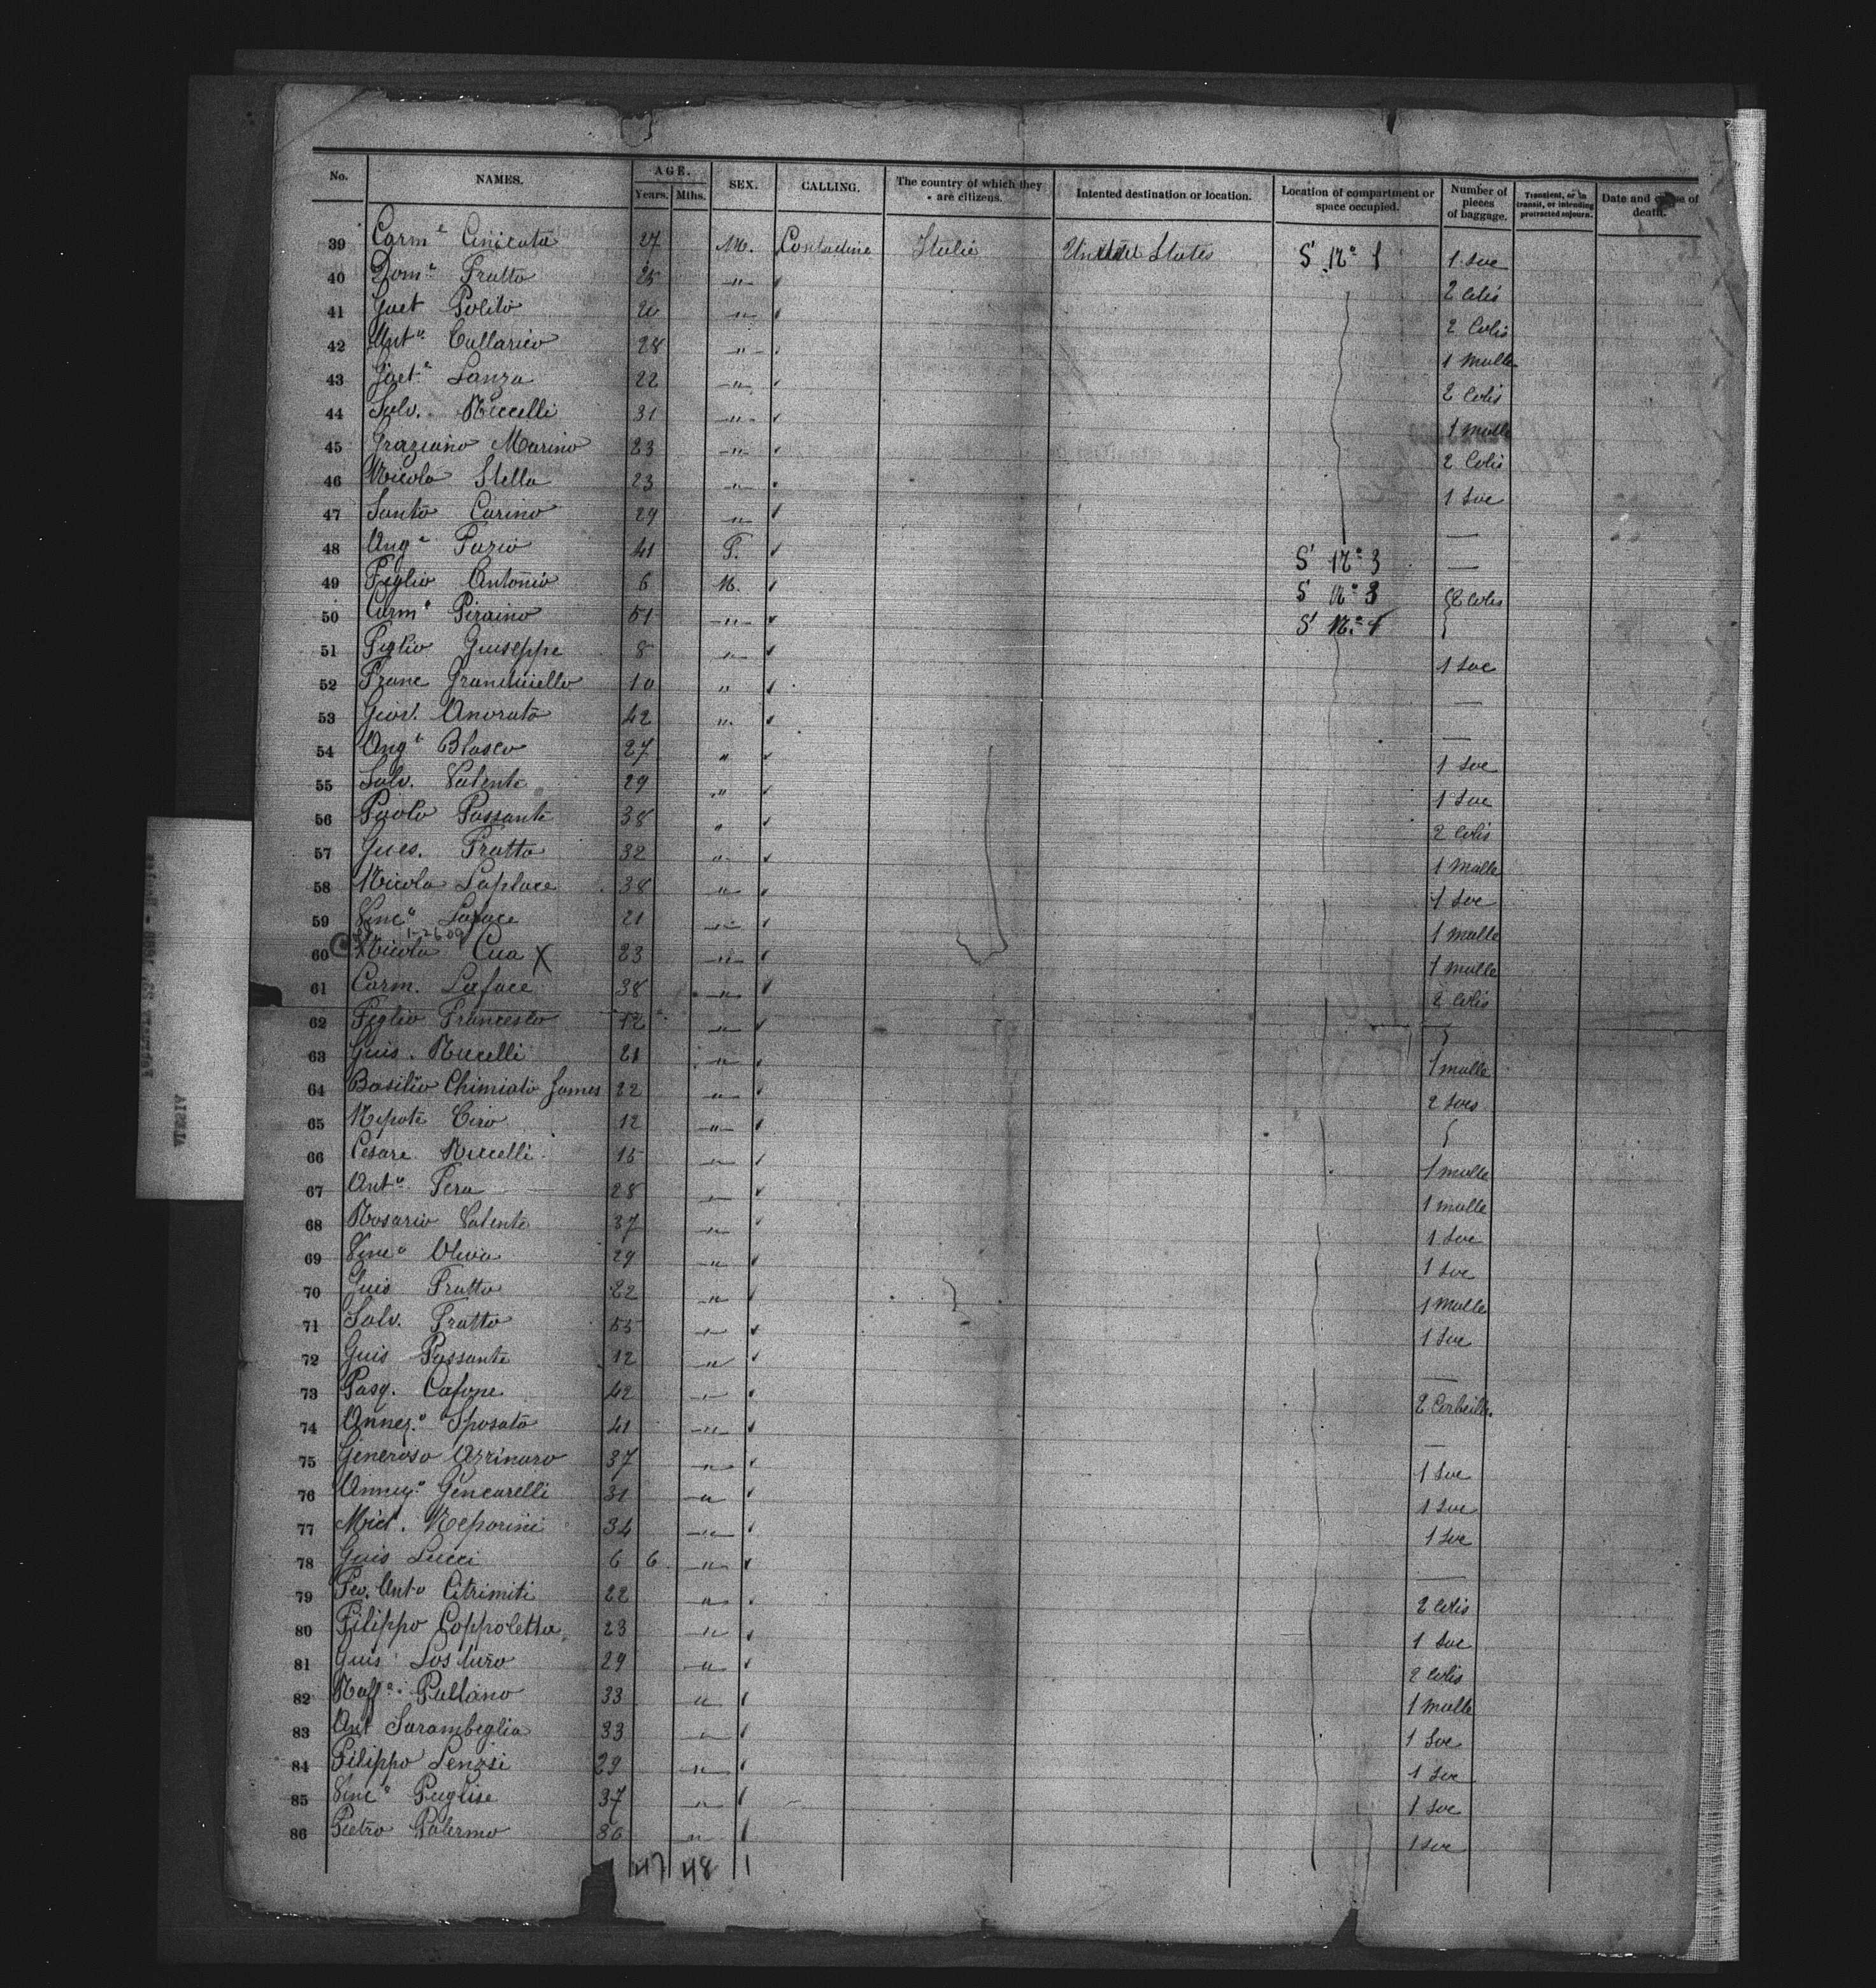 No. NAMES. AGE. Years. Mths. SEX. CALLING. The country of which they are citizens. Intented destination or location. Location of compartment or space occupied. Number of pieces of baggage. Transient, or in transit, or intending protracted sojourn. Date and cause of death.
39 Carm.e 27 M. Contadine Italie United States S N.o 1 1 Sac
40 Dom.o Fratto 25 " 2 Colis
41 Gaet Polito 20 " 2 Colis
42 Ant.o Cullarico 28 " 1 Malle
43 Gaet.o Lanza 22 " 2 Colis
44 Salv. Miccelli 31 " 1 Malle
45 Graziano Marino 23 " 2 Colis
46 Nicola Stella 23 " 1 Sac
47 Santo Carino 29 " —
48 Ang.a Fazio 41 F. S N.o 3 —
49 Figlio Antonio 6 M. S N.o 3 2 Colis
50 Carm.o Piraino 51 " S N.o 1
51 Figlio Giuseppe 8 " 1 Sac
52 Franc 10 " —
53 Giov. Anorato 42 " —
54 Ang.o Blasco 27 " 1 Sac
55 Salv. Valente 29 " 1 Sac
56 Paolo Passante 38 " 2 Colis
57 Gues. Fratto 32 " 1 Malle
58 Nicola Laplace 38 " 1 Sac
59 Vinc.o Laface 21 " 1 Malle
1-26 09
60 Nicola Cua X 23 " 1 Malle
61 Carm. Laface 38 " 2 Colis
62 Figlio Francesco 12 "
63 Guis. Miccelli 21 " 1 Malle
64 Basilio Chimiato James 22 " 2 Sacs
65 Nepote Ciro 12 "
66 Cesare Miccelli 15 " 1 Malle
67 Ant.o Fera 28 " 1 Malle
68 Rosario Valente 37 " 1 Sac
69 Vinc.o Oliva 29 " 1 Sac
70 Guis Fratto 22 " 1 Malle
71 Salv. Fratto 55 " 1 Sac
72 Guis Passante 12 " —
73 Pasq. Cafone 42 " 2 Corbeilles
74 Sposato 41 " —
75 Generoso Azzinaro 37 " 1 Sac
76 Gencarelli 31 " 1 Sac
77 Mich. Neporini 34 " 1 Sac
78 Guis Lucci 6 6 " —
79 Ant.o Citrimiti 22 " 2 Colis
80 Filippo Coppoletta 23 " 1 Sac
81 Guis Losturo 29 " 2 Colis
82 Raff.e Pullano 33 " 1 Malle
83 Ant Sarambeglia 33 " 1 Sac
84 Filippo Lenzsi 29 " 1 Sac
85 Vinc.o Puglise 37 " 1 Sac
86 Pietro Palermo 36 " 1 Sac
47 48 1